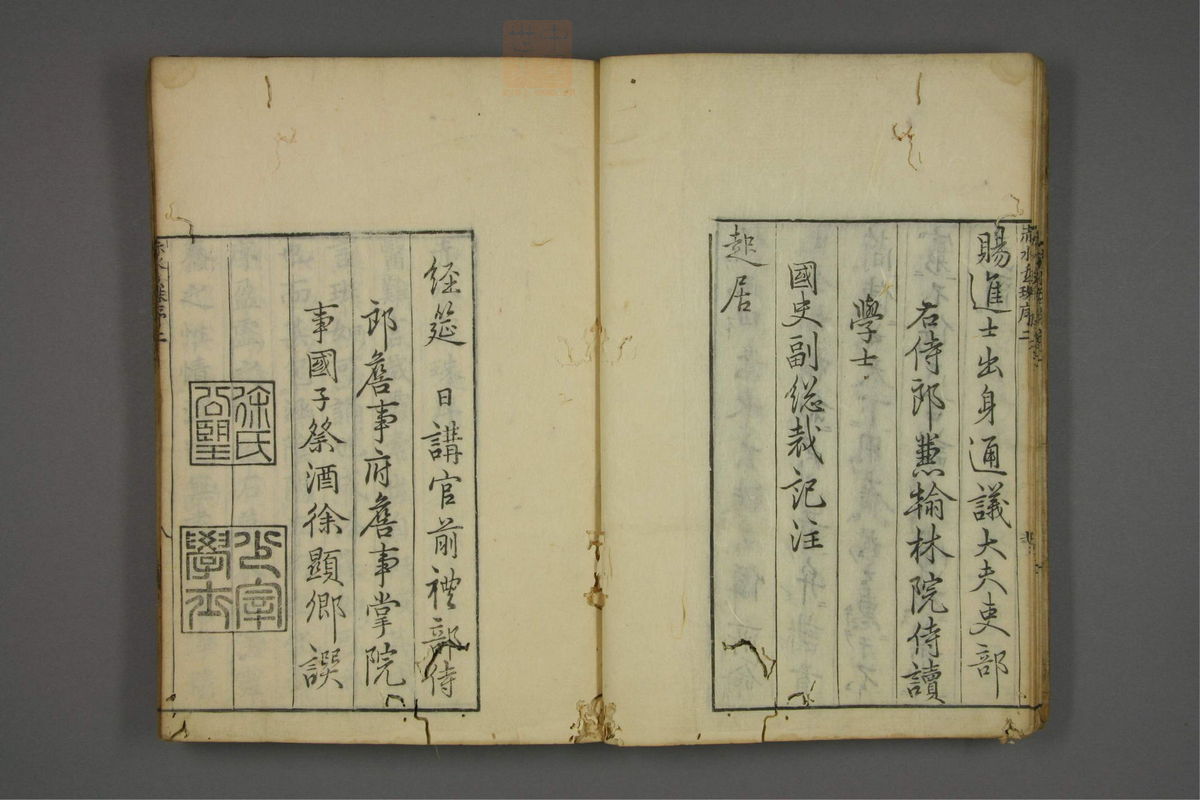 賜進士出身通議大夫吏部
右侍郎兼翰林院侍讀
學士
國史副総裁記注
起居
經筵日講官前禮部侍
郎詹事府詹事掌院
事國子祭酒徐顯卿譔
徐氏
公望
少宰
學士
赤水玄珠序二